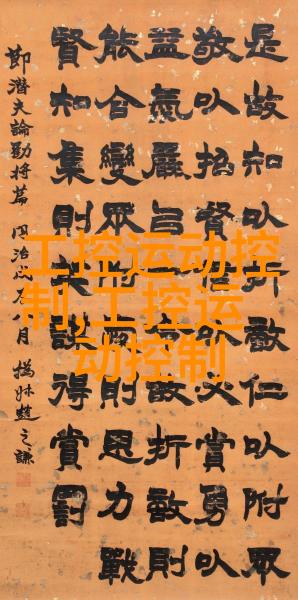 是故知以折敵仁以附眾
敬以招賢信以必賞勇以
益氣嚴㠯一令故折敵則
能合變眾附則思力戰
賢知集則英謀得賞罰
節潛夫論勸將篇 同治月 撝叔趙之謙
工控运动控
制,工控运
动控制